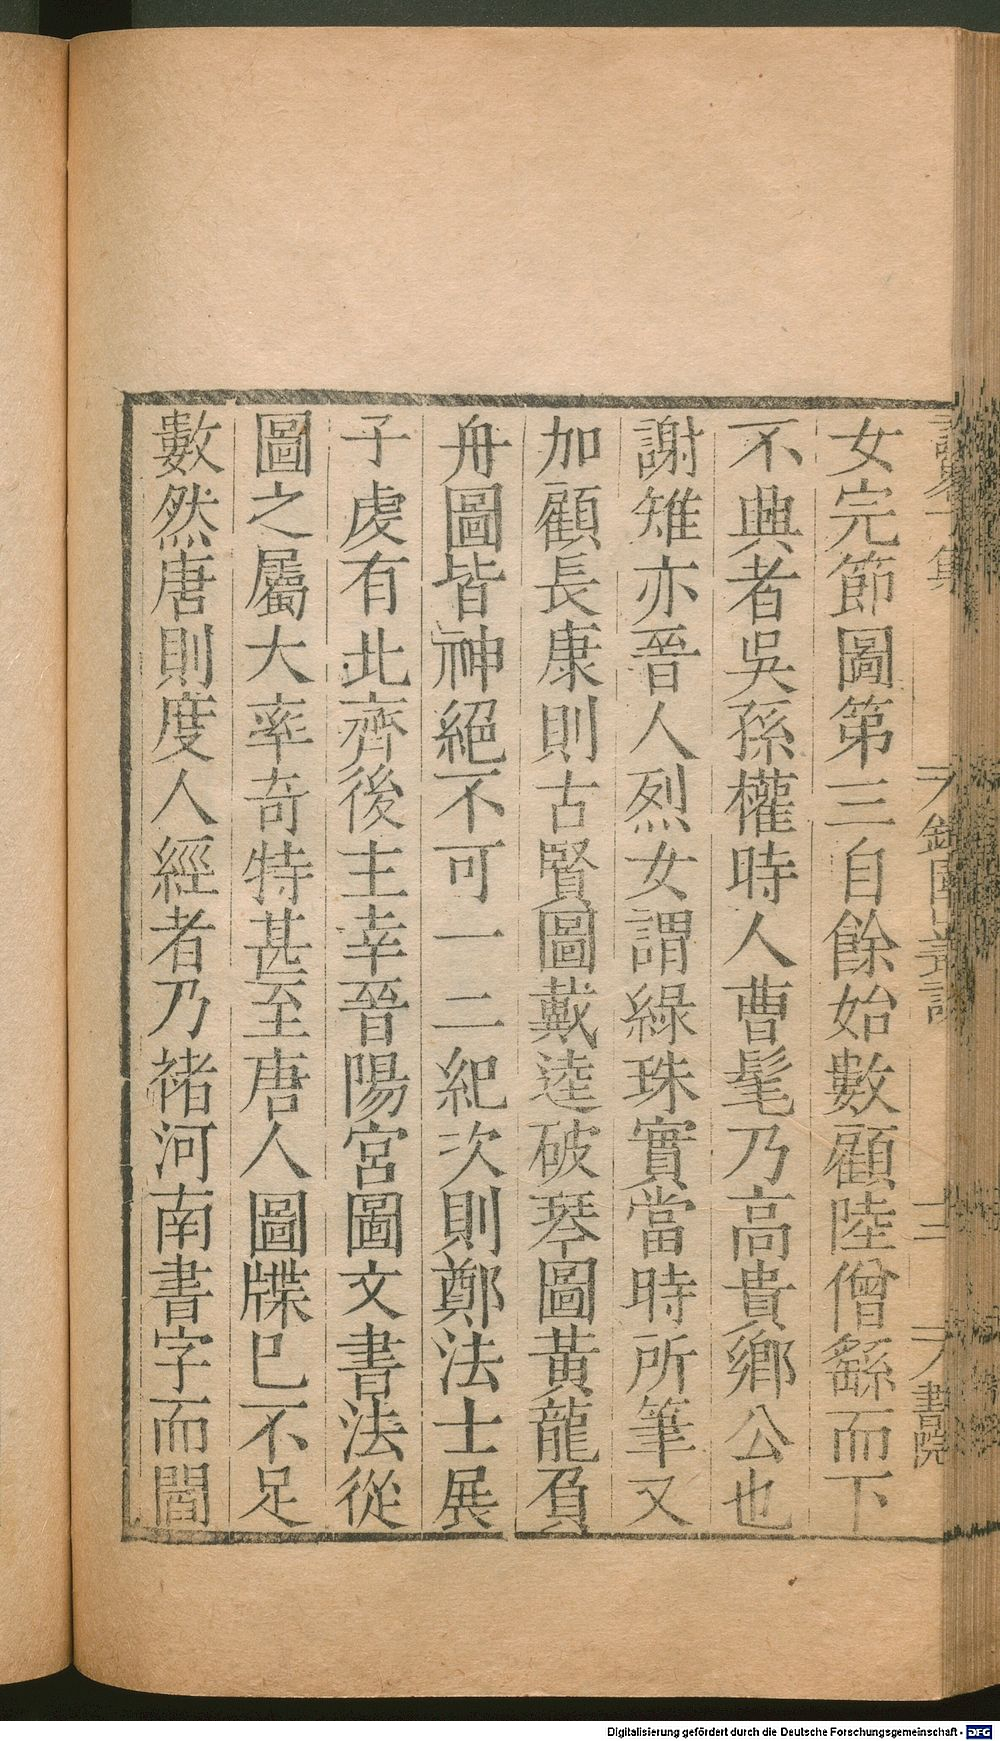 女完節圖第三自餘始數顧陸僧繇而下
不興者吳孫權時人曹髦乃高貴鄉公也
謝雉亦晉人烈女謂綠珠實當時所筆又
加顧長康則古賢圖戴逵破琴圖黃龍負
舟圖皆神絕不可一二紀次則鄭法士展
子虔有北齊後主幸晉陽宮圖文書法從
圖之屬大率奇特甚至唐人圖牒已不足
數然唐則度人經者乃褚河南書字而閻
三
書院
Digitalisierung gefördert durch die Deutsche Forschungsgemeinschaft - DFG